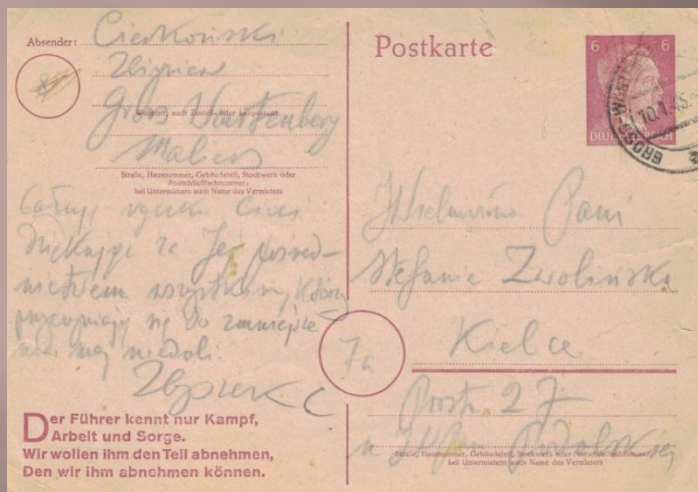 Absender:
Zbigniew
Gross Wartenberg
Wohnort, auch Zustell- oder Leitpostamt
Straße, Hausnummer, Gebäudeteil, Stockwerk oder
Postschließfachnummer;
bei Untermietern auch Name des Vermieters
Całuję rączki Cioci
Dziękując za Jej pośred-
nictwem wszystkim, którzy
przyczyniają się do zmniejsze-
nia mej niedoli.
Der Führer kennt nur Kampf,
Arbeit und Sorge.
Wir wollen ihm den Teil abnehmen,
Den wir ihm abnehmen können.
Postkarte
6 6
DEUTSCHES REICH
GROSS WARTENBERG
10.1.45
Wielmożna Pani
Stefania Zwolińska
Kielce
7a
27
Straße, Hausnummer, Gebäudeteil, Stockwerk oder Postschließfachnummer;
bei Untermietern auch Name des Vermieters